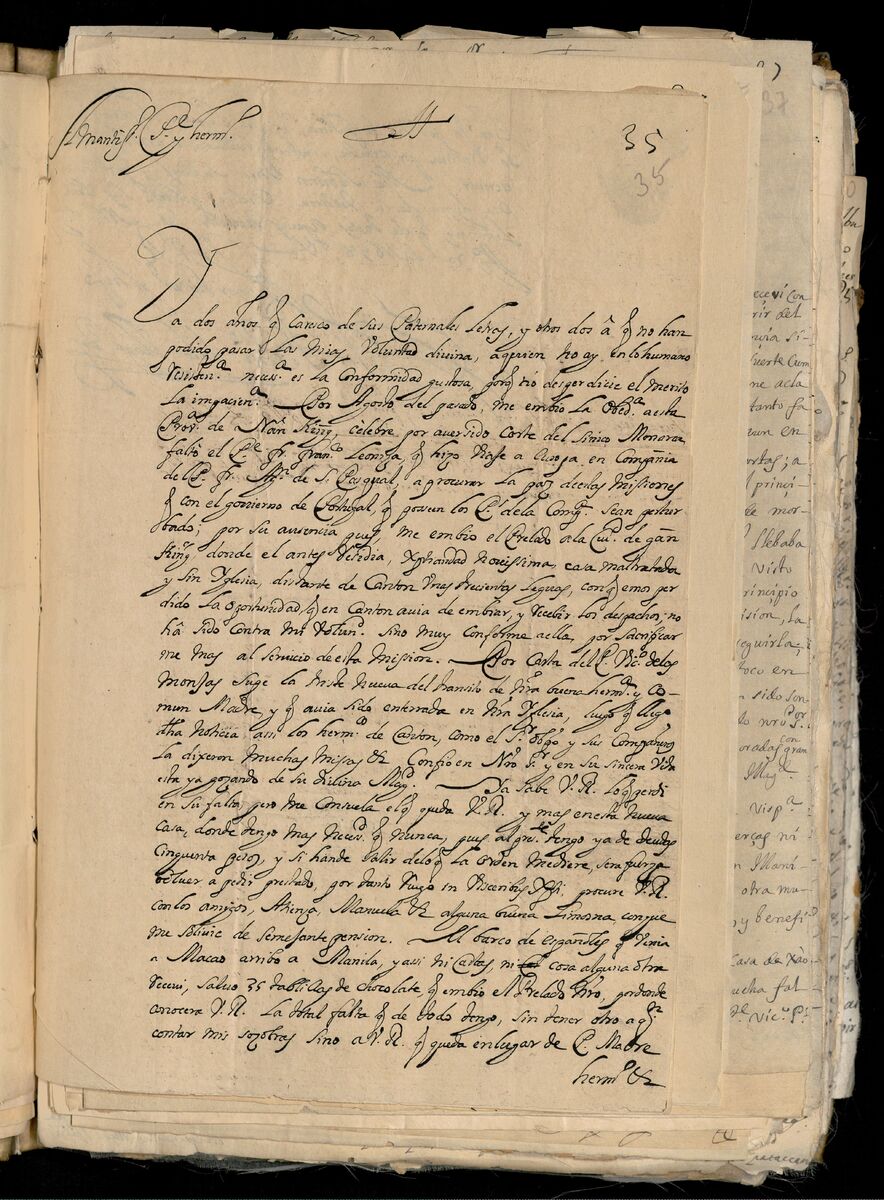 Amantis.º P.e y herm.º
35
35
Ya dos años q carezco de sus Paternales Letras, y otros dos â q no han
podido pasar las mias Voluntad divina, a quien no ay en lo humano
resisten.ª neces.ª es la Conformidad gustosa, porq no desperdicie el merito
la impacien.ª Por Agosto del pasado, me embio la Obed.ª a esta
Prov.ª de Nan King, celebre por aver sido Corte del Sinico Monarca
falto el P.e fr. Fran.co Leonisa q hizo Viaje a Europa en Compañia
del P. fr. de S. Pasqual, a procurar la paz de estas Missiones
q con el govierno de Portugal, q poseen los P.s de la Cong.n sean pertur
bado; por su ausencia pues, me embio el Prelado a la Ciu.d de gan
King, donde el antes Residia, Xpianidad novissima, casa maltratada
y sin Yglesia, distante de Canton Unas trecientas Leguas, conq emos per
dido la oportunidad q en Canton avia de embiar, y recebir los despachos; no
ha sido contra mi volun.d Sino muy Conforme a ella, por sacrificar
me mas al servicio de esta Mission. Por Carta del P. Vic.º de las
Monjas supe la triste nueva del transito de Nrâ buena herm.ª y Co-
mun Madre, y q avia sido enterrada en Nrâ Yglesia, luego q llego
dha Noticia assi los herm.os de Canton, como el S.r Obpo y sus Compañeros
la dixeron muchas Missas &c Confio en Nro S.r y en su sincera Vida
esta ya gozando de su divina Mag.d Ya Sabe V.R. lo q perdi
en su falta, pero me Consuela el q queda V.R. y mas en esta nueva
Casa, donde tengo mas Neces.d q nunca, pues al pre.te tengo ya de deudas
Cinquenta pesos, y si han de salir de lo q la orden me diere, sera fuerza
bolver a pedir prestado, por tanto Ruego in Visceribus Xpi, procure V.R.
con los amigos, Atienza, Manuela &c alguna buena Limosna con que
me alivie de semejante pension. El barco de Españoles q Venia
a Macao arribo a Manila, y assi ni Cartas, ni cosa alguna otra
recevi, salvo 35 tablillas de chocolate, q embio el Prelado Nro, por donde
conocera V.R. la total falta q de todo tengo, sin tener otro a q.n
contar mis sozobras sino a V.R. q queda en lugar de P. Madre
herm.º &c